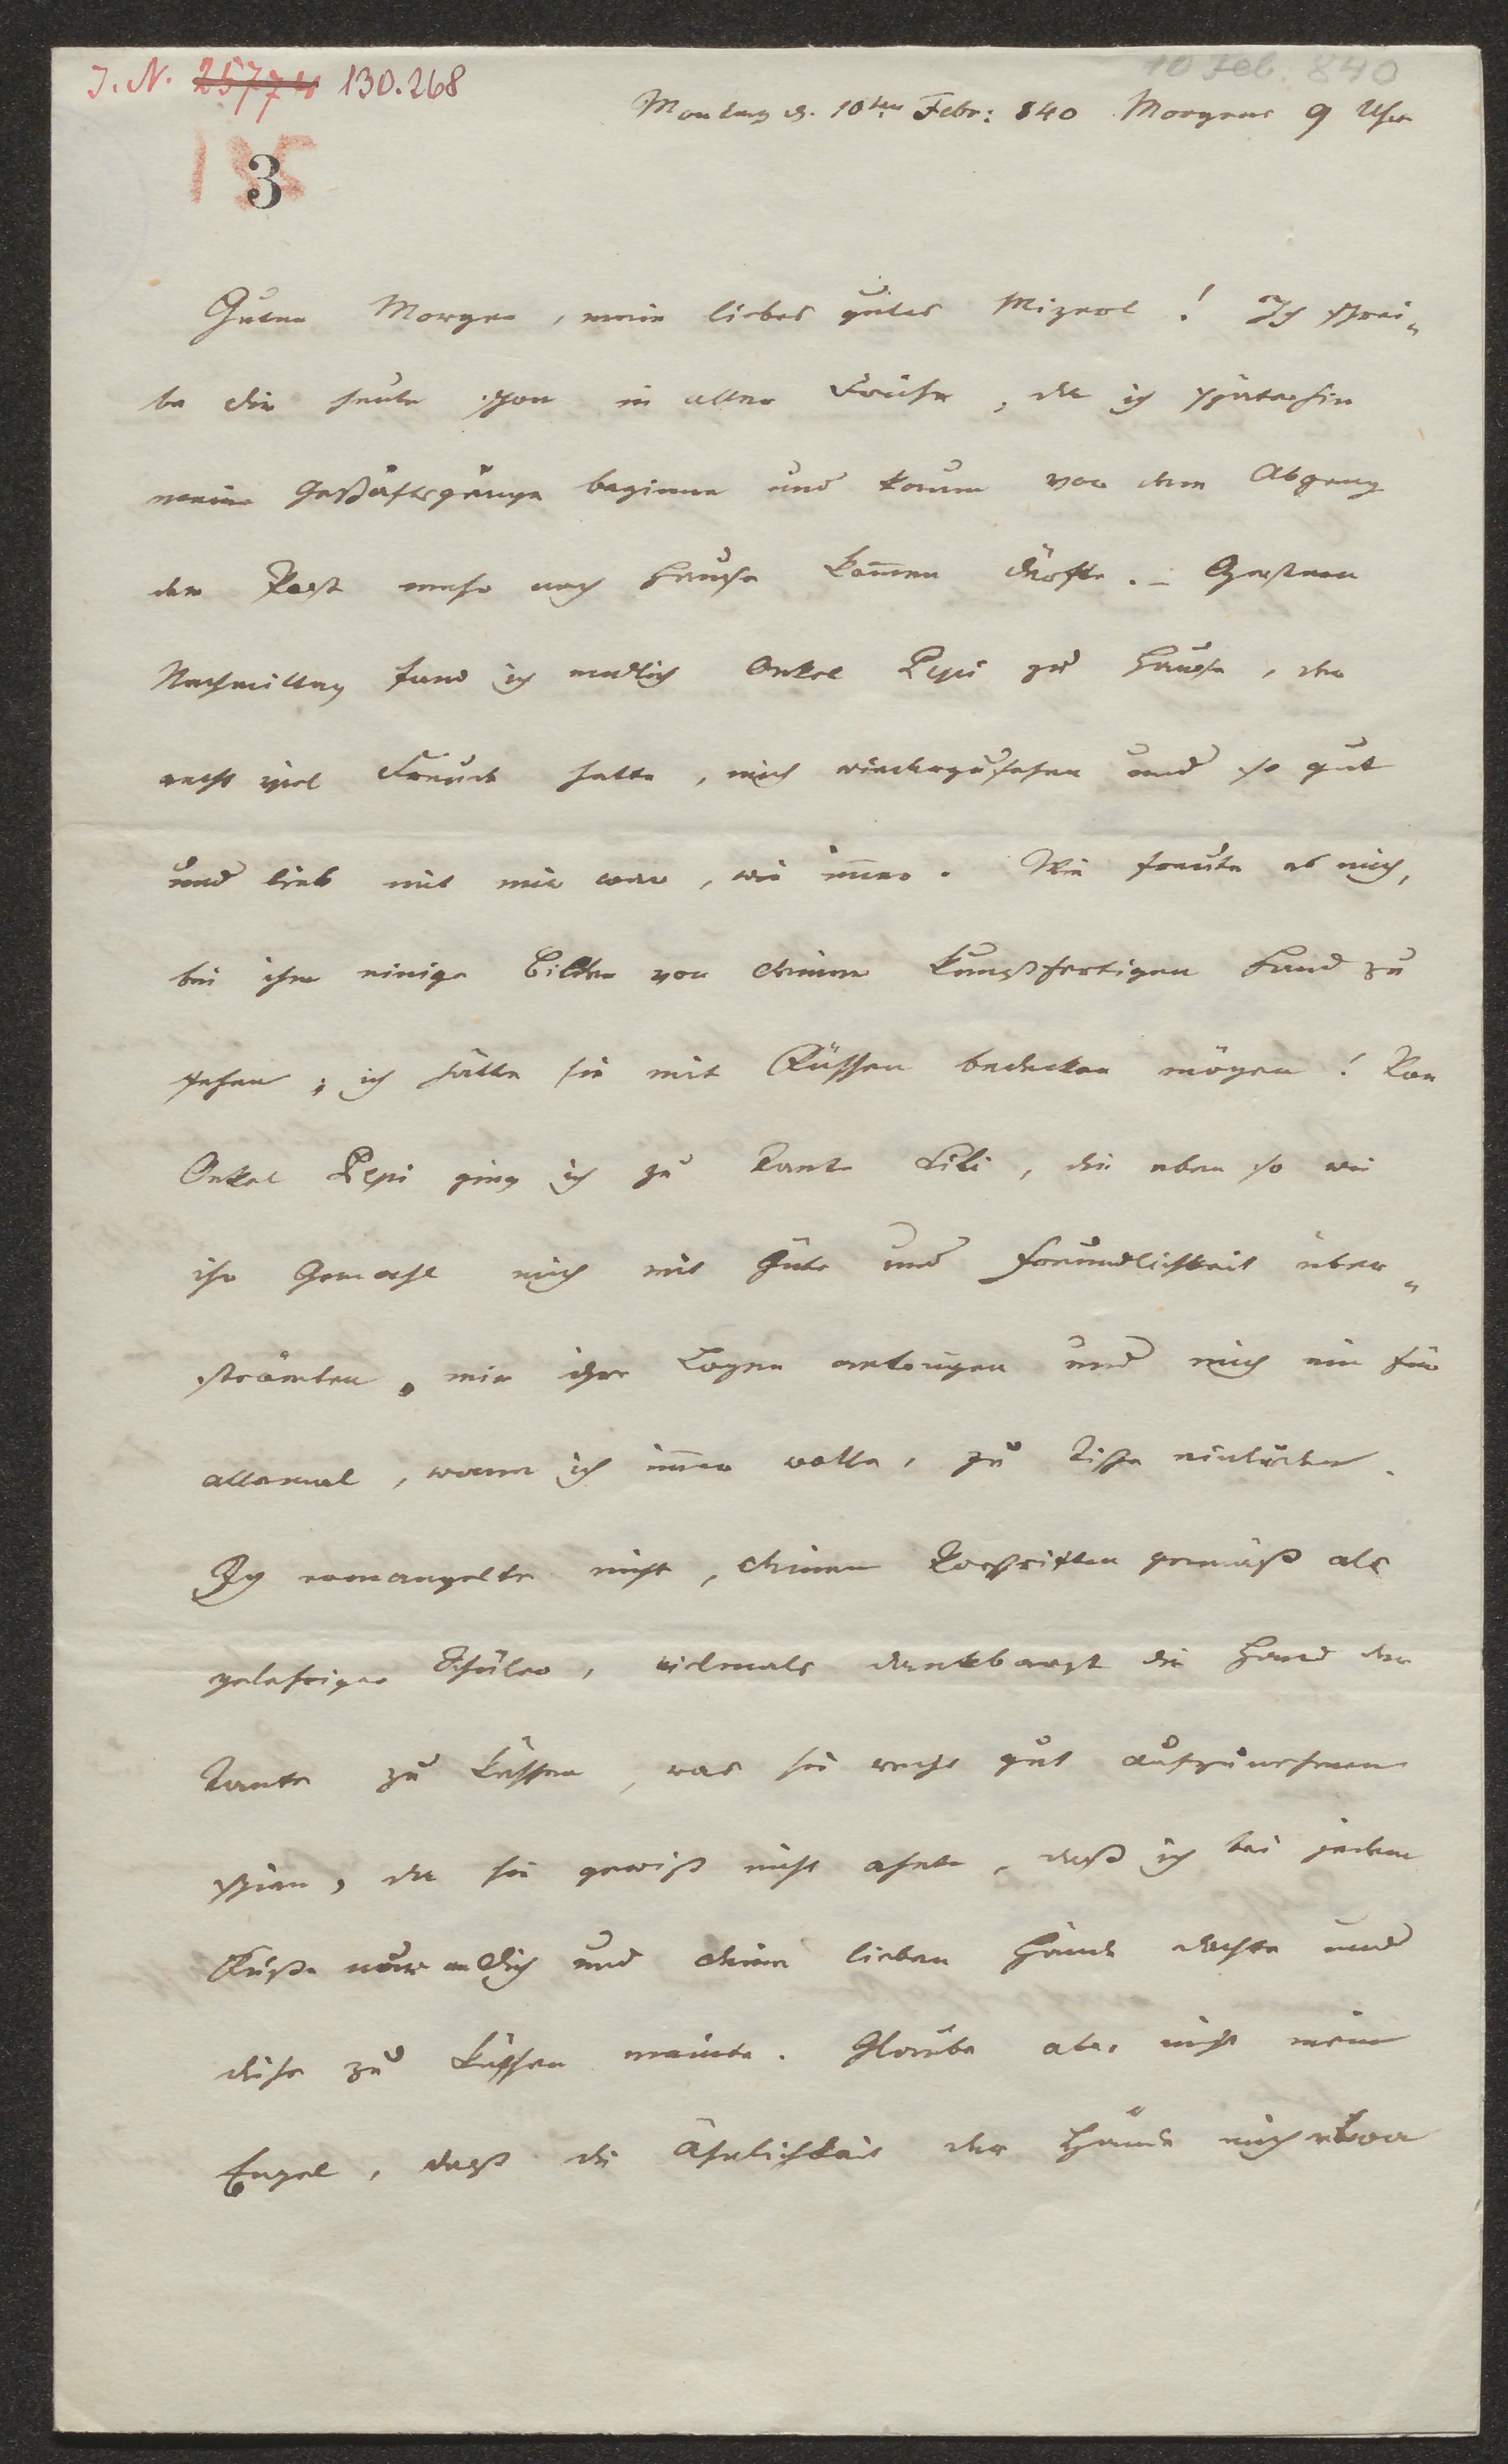 J. N. 25774 130.268
10 Feb. 840
Montag d. 10ten Febr: 840 Morgens 9 Uhr
3
Guten Morgen, mein liebes gutes Mizerl! Ich schrei„
be dir heute schon in aller Frühe, da ich späterhin
meine Geschäftsgänge beginne und kaum vor dem Abgang
der Post mehr nach Hause kommen dürfte. – Gestern
Nachmittag fand ich endlich Onkel Pepi zu Hause, der
recht viel Freude hatte, mich wiederzusehen und so gut
und lieb mit mir war, wie immer. Wie freute es mich,
bei ihm einige Bilder von deiner kunstfertigen Hand zu
sehen; ich hätte sie mit Küssen bedecken mögen! Von
Onkel Pepi ging ich zu Tante Lili, die eben so wie
ihr Gemahl mich mit Güte und Freundlichkeit über„
strömten, mir ihre Logen antrugen und mich ein für
allemal, wann ich immer wolle, zu Tische einluden.
Ich ermangelte nicht, deinen Vorschriften gemäß als
gelehriger Schüler, vielmals dankbarst die Hand der
Tante zu küssen, was sie recht gut aufzunehmen
schien, da sie gewiß nicht ahnte, daß ich bei jedem
Kuße nur an dich und deine lieben Hände dachte und
diese zu küssen meinte. Glaube aber nicht mein
Engel, daß die Ähnlichkeit der Hände mich etwa